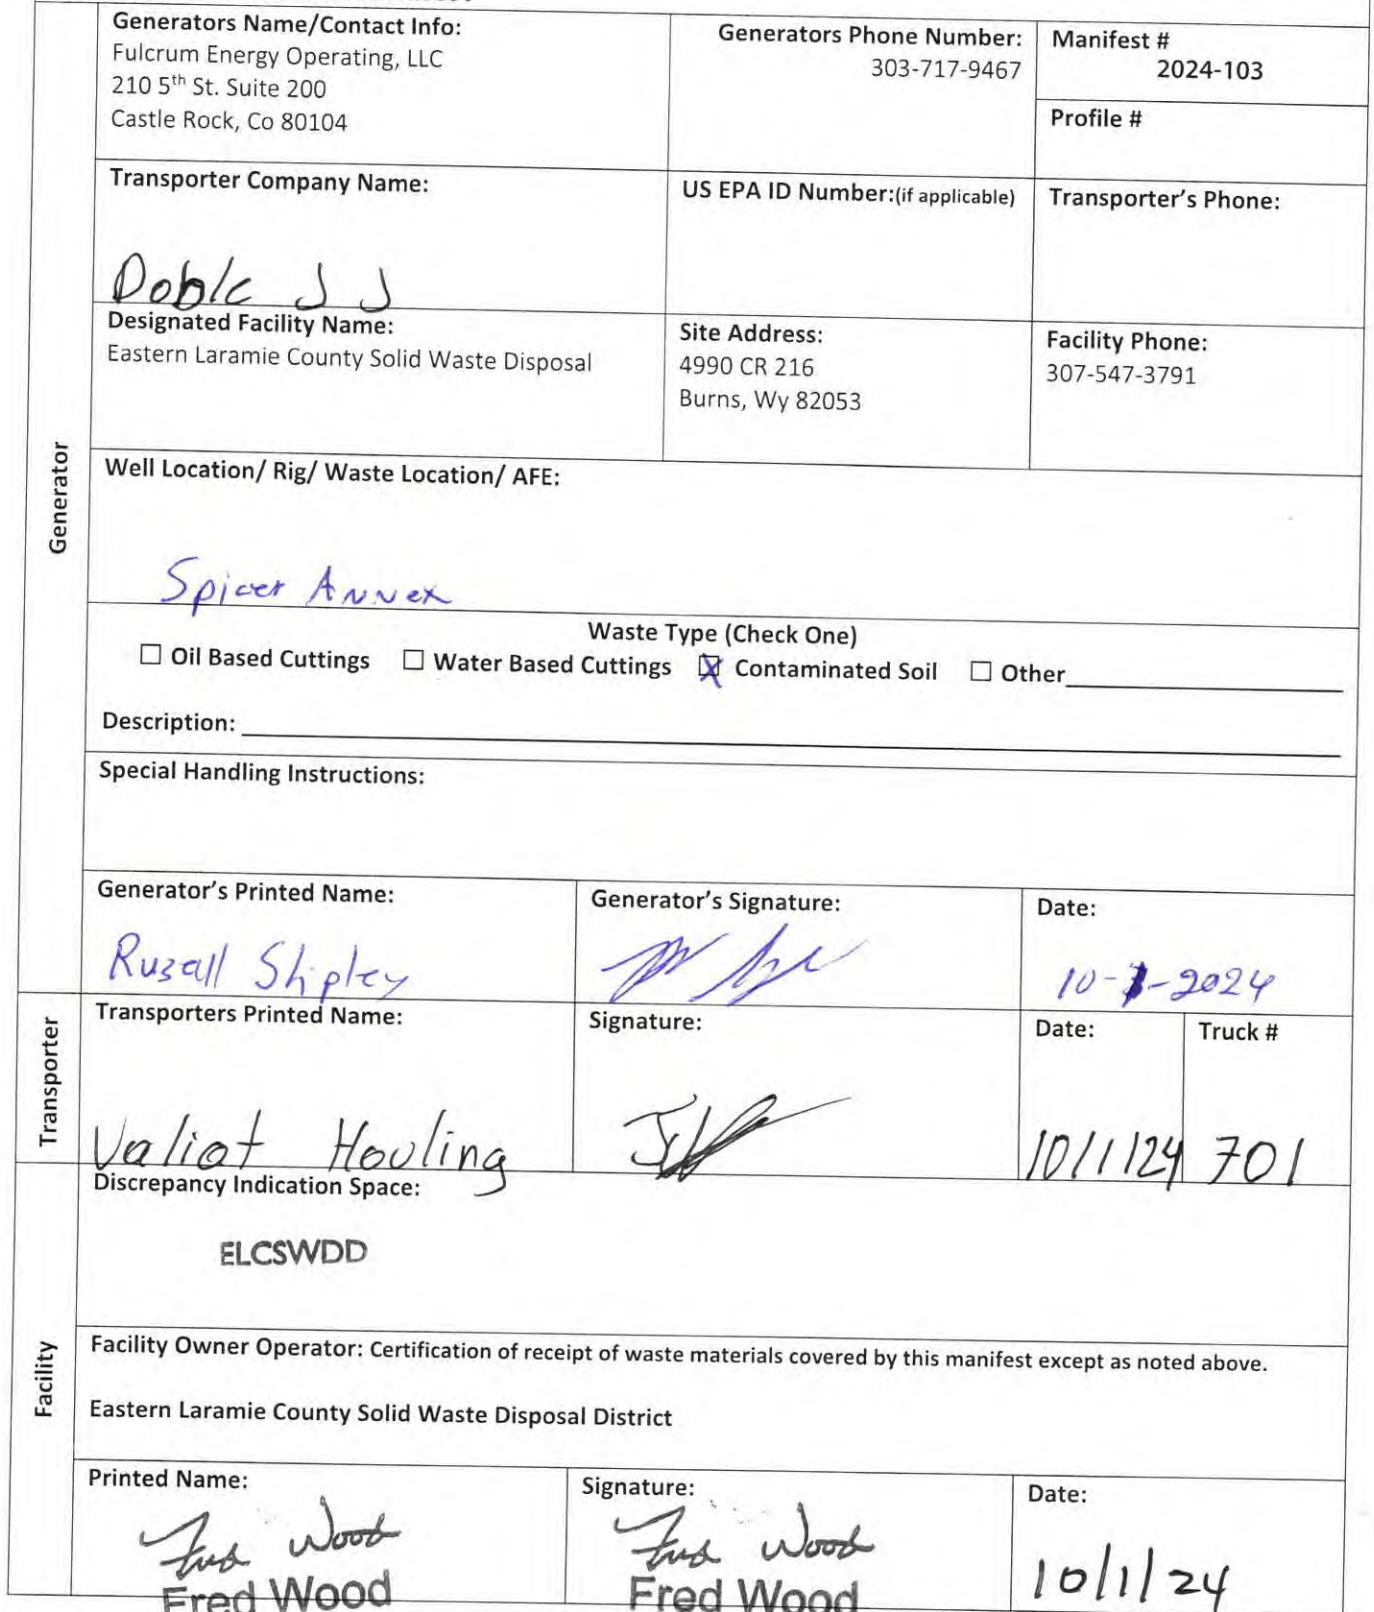 Generators Name/Contact Info:
Fulcrum Energy Operating, LLC
210 5th St. Suite 200
Castle Rock, Co 80104
Generators Phone Number:
303-717-9467
Manifest #
2024-103
Profile #
Transporter Company Name:
Doble J J
US EPA ID Number:(if applicable)
Transporter's Phone:
Designated Facility Name:
Eastern Laramie County Solid Waste Disposal
Site Address:
4990 CR 216
Burns, Wy 82053
Facility Phone:
307-547-3791
Generator
Well Location/ Rig/ Waste Location/ AFE:
Spicer Annex
Waste Type (Check One)
☐ Oil Based Cuttings ☐ Water Based Cuttings ☒ Contaminated Soil ☐ Other
Description:
Special Handling Instructions:
Generator's Printed Name:
Rusall Shipley
Generator's Signature:
Date:
10-1-2024
Transporter
Transporters Printed Name:
Valiat Houling
Signature:
Date:
10/1/24
Truck #
701
Facility
Discrepancy Indication Space:
ELCSWDD
Facility Owner Operator: Certification of receipt of waste materials covered by this manifest except as noted above.
Eastern Laramie County Solid Waste Disposal District
Printed Name:
Fred Wood
Fred Wood
Signature:
Fred Wood
Fred Wood
Date:
10/1/24